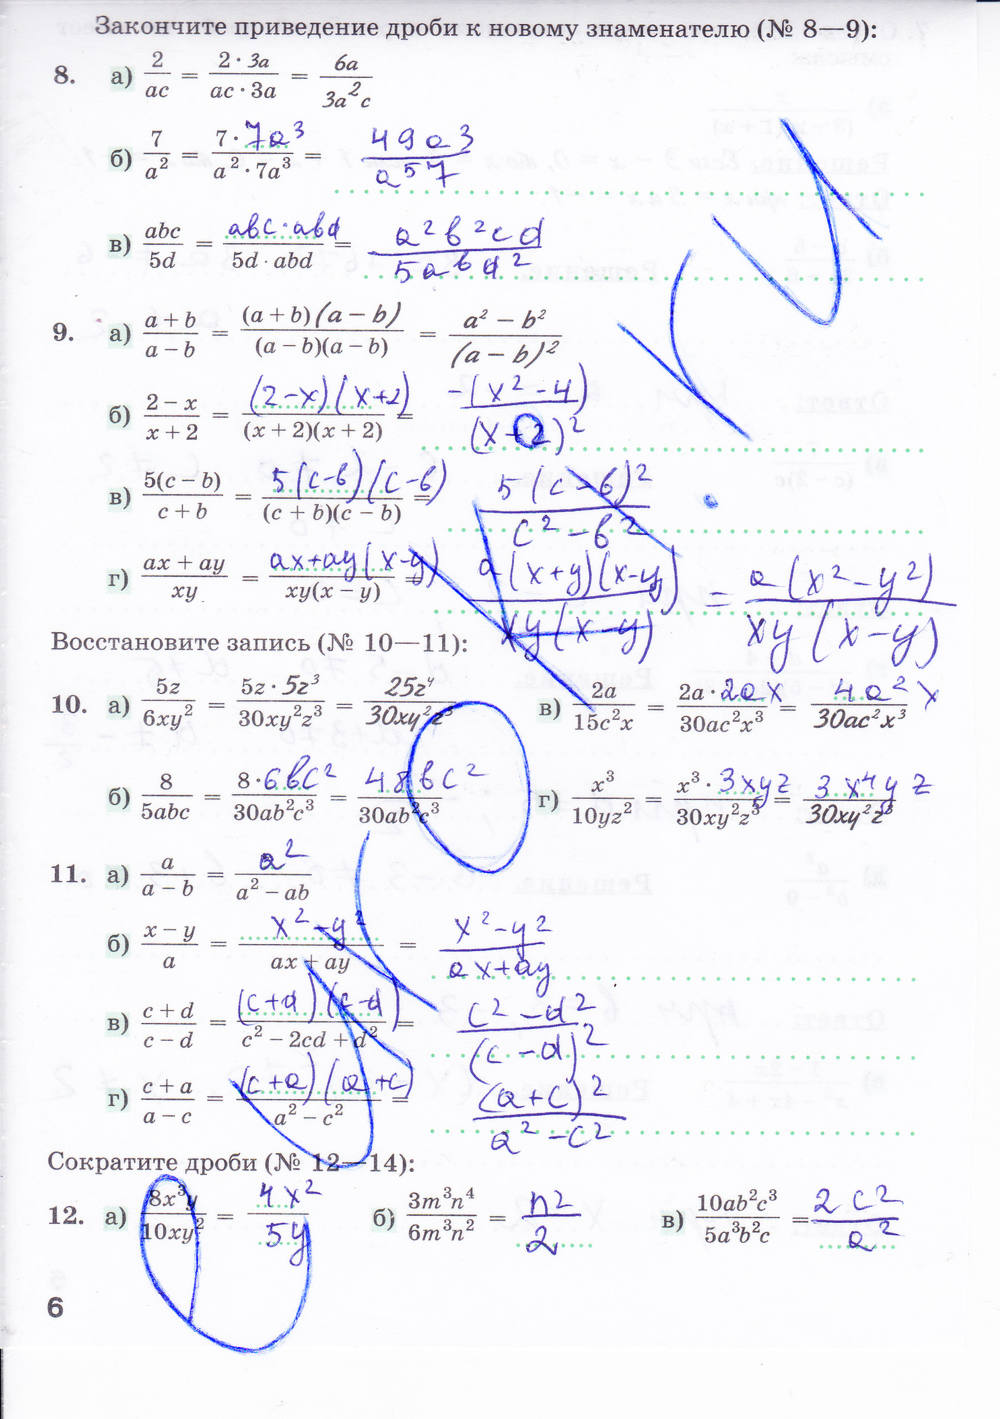 Закончите приведение дроби к новому знаменателю (№ 8—9):
8. а) 2/ac = 2 · 3a/ac · 3a = 6a/3a²c
б) 7/a² = 7 · 7a³/a² · 7a³ = 49a3/a⁵7
в) abc/5d = abc·abd/5d · abd = a²b²cd/5abd²
9. а) a + b/a − b = (a + b)(a − b)/(a − b)(a − b) = a² − b²/(a − b)²
б) 2 − x/x + 2 = (2−x)(x+2)/(x + 2)(x + 2) = −(x²−4)/(x+2)²
в) 5(c − b)/c + b = 5(c−b)(c−b)/(c + b)(c − b) = 5(c−b)²/c²−b²
г) ax + ay/xy = ax+ay(x−y)/xy(x − y) = a(x+y)(x−y)/xy(x−y) = a(x²−y²)/xy(x−y)
Восстановите запись (№ 10—11):
10. а) 5z/6xy² = 5z · 5z³/30xy²z³ = 25z⁴/30xy²z³ в) 2a/15c²x = 2a · 2ax/30ac²x³ = 4a²x/30ac²x³
б) 8/5abc = 8·6bc²/30ab²c³ = 48bc²/30ab²c³ г) x³/10yz² = x³ · 3xyz/30xy²z³ = 3x⁴yz/30xy²z³
11. а) a/a − b = a²/a² − ab
б) x − y/a = x²−y²/ax + ay = x²−y²/ax+ay
в) c + d/c − d = (c+d)(c−d)/c² − 2cd + d² = c²−d²/(c−d)²
г) c + a/a − c = (c+a)(a+c)/a² − c² = (a+c)²/a²−c²
Сократите дроби (№ 12—14):
12. а) 8x³y/10xy² = 4x²/5y б) 3m³n⁴/6m³n² = n2/2 в) 10ab²c³/5a³b²c = 2c²/a²
6